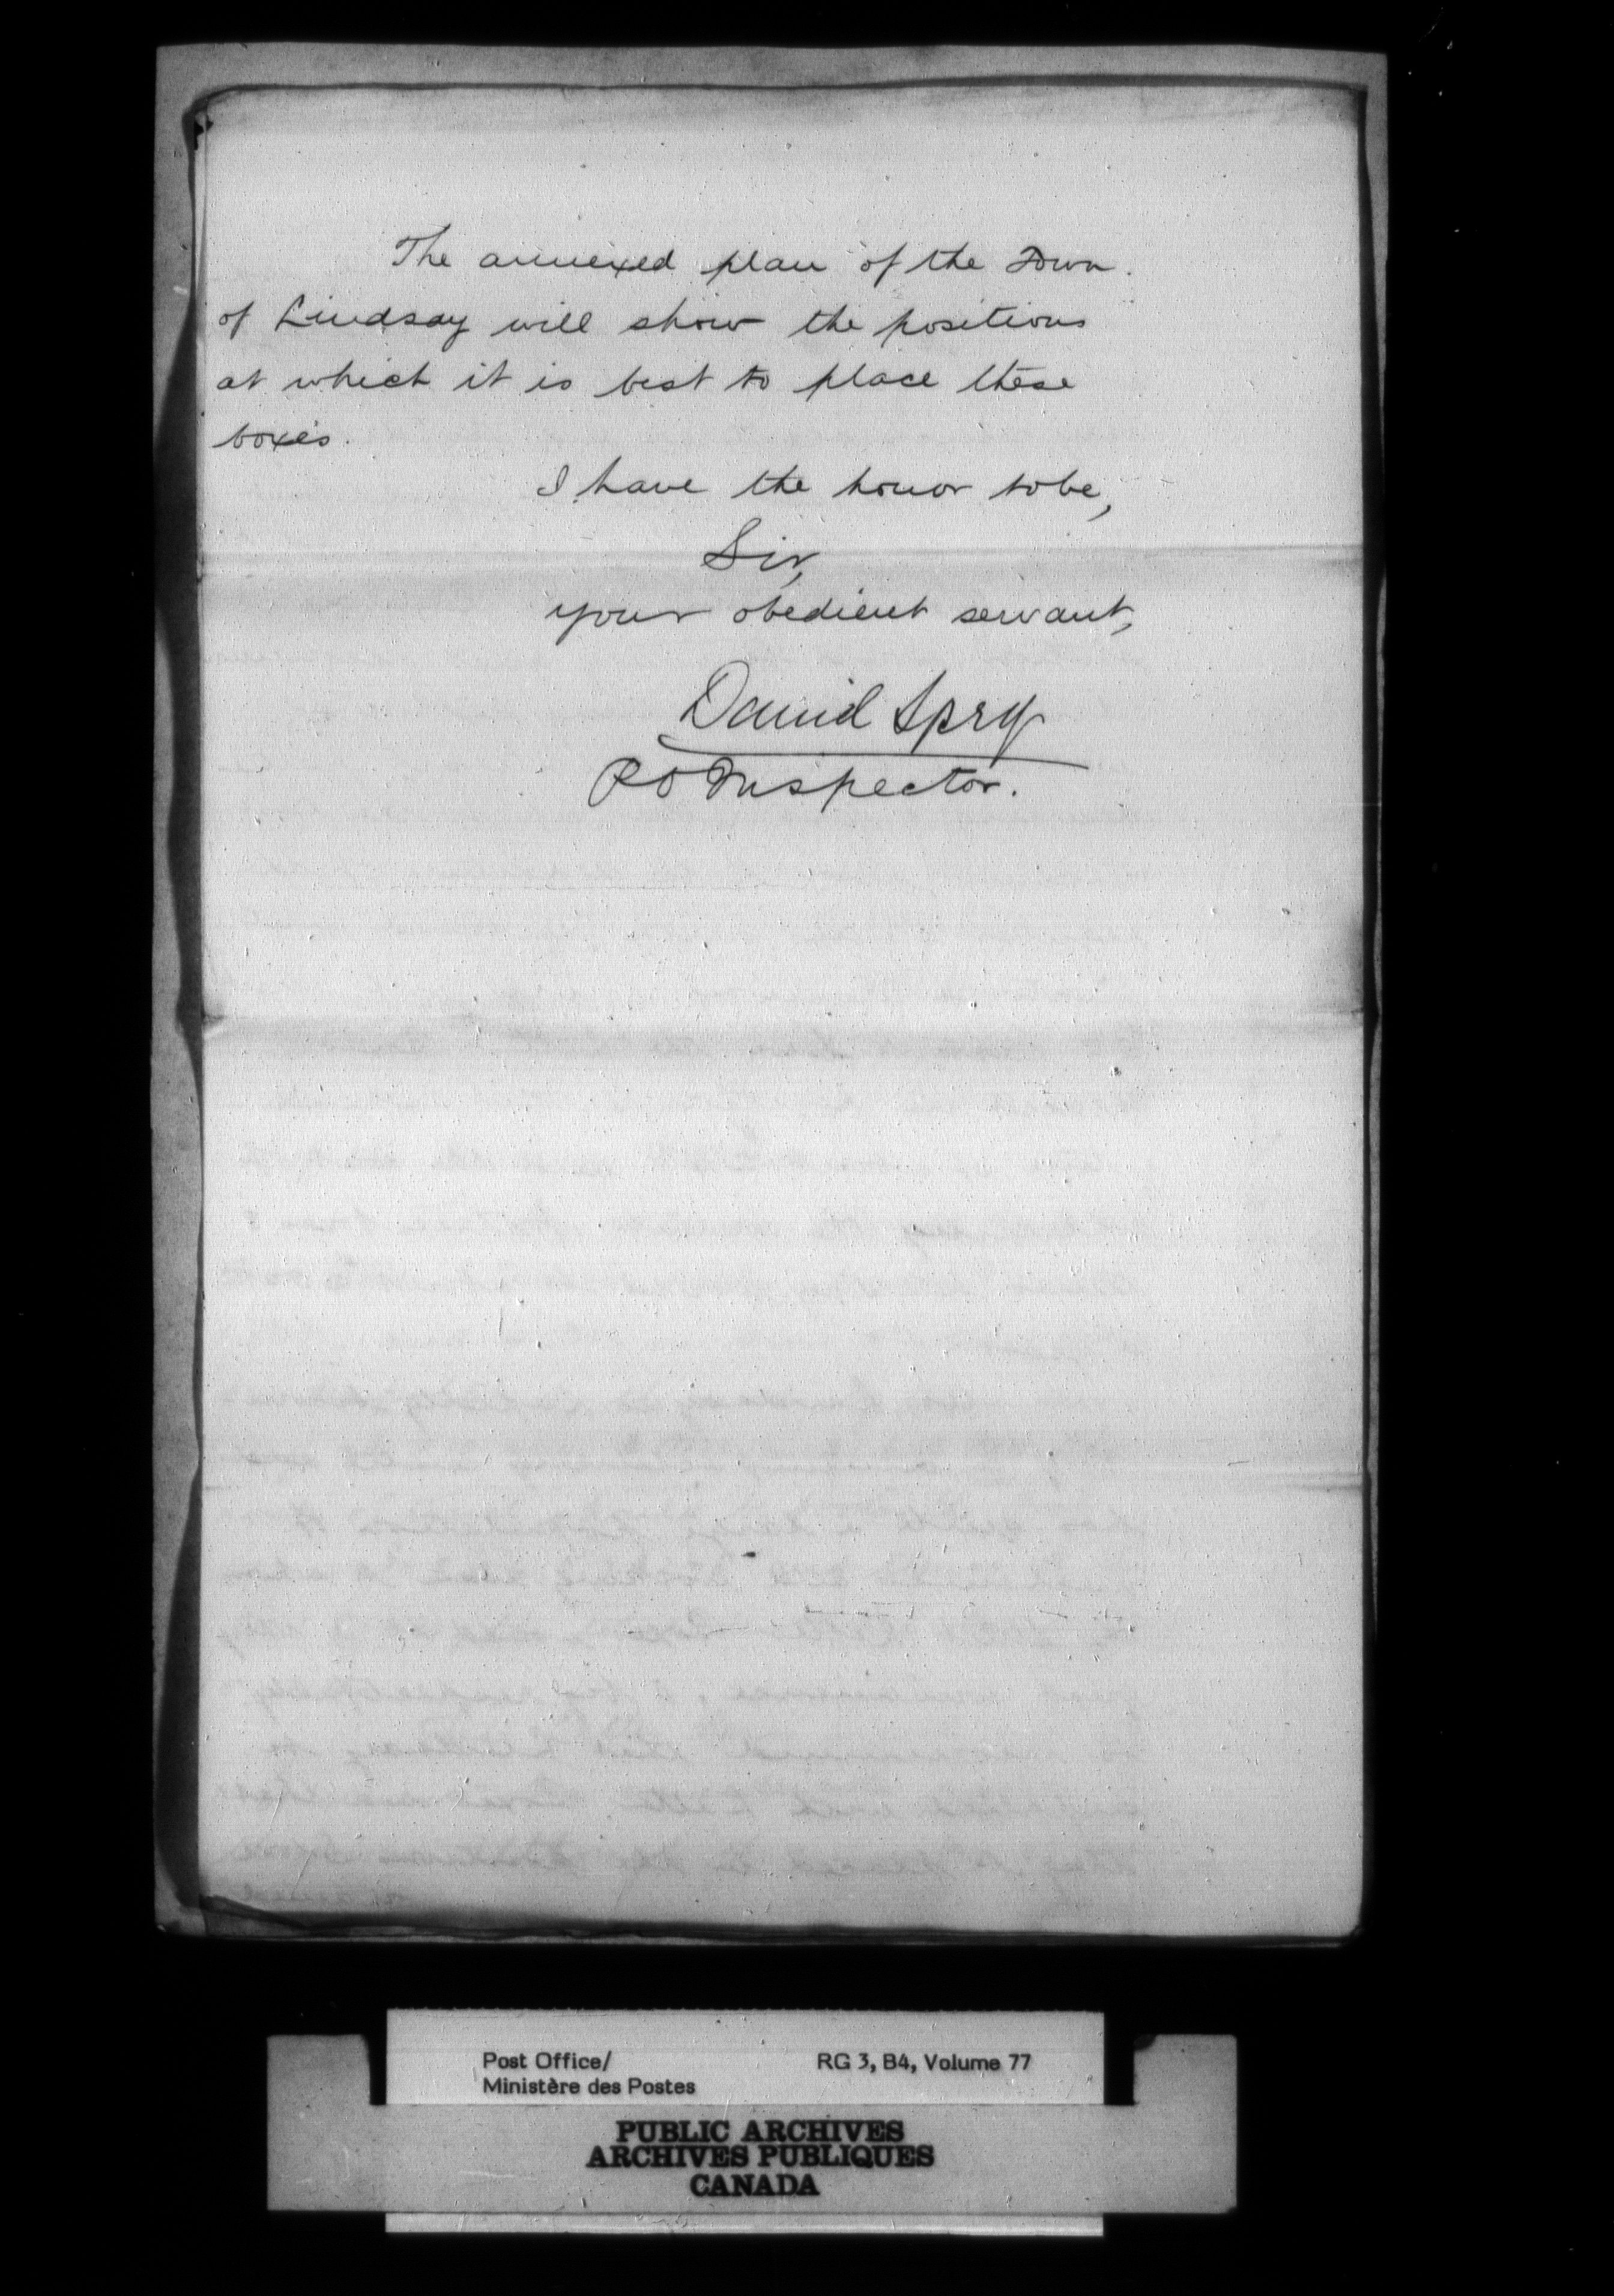 The annexed plan of the Town
of Lindsay will show the positions
at which it is best to place these
boxes.
I have the honor to be,
Sir,
your obedient servant,
David Spry
PO Inspector.
Post Office/
Ministère des Postes
RG 3, B4, Volume 77
PUBLIC ARCHIVES
ARCHIVES PUBLIQUES
CANADA